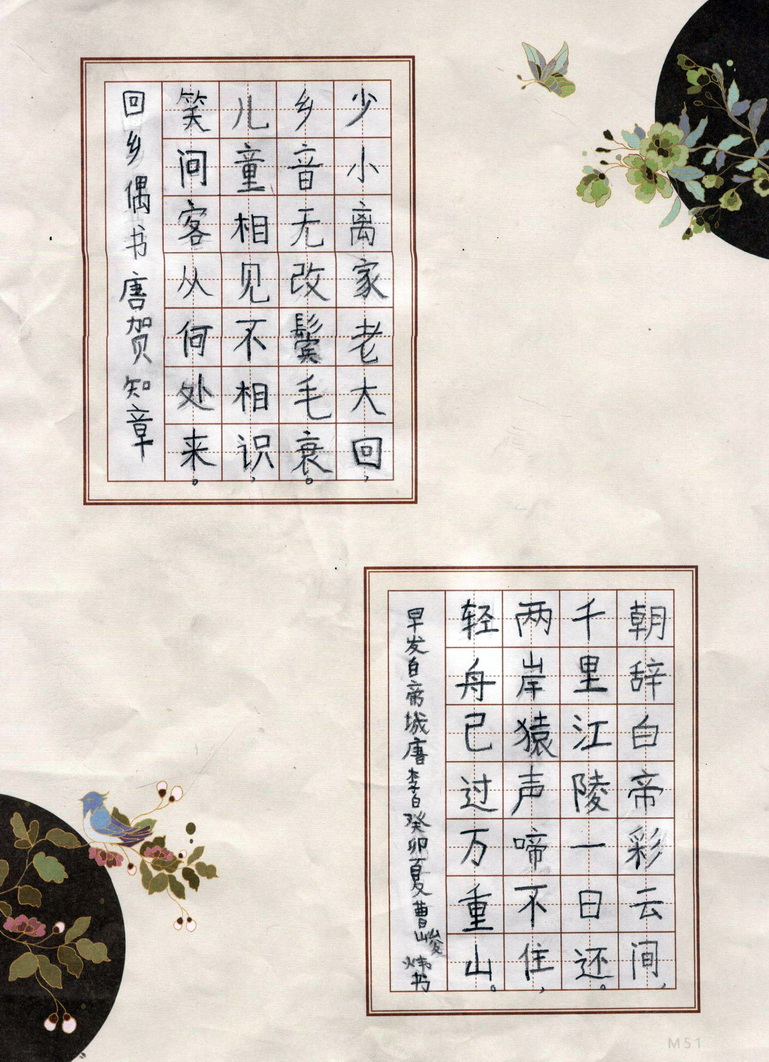 少小离家老大回，
乡音无改鬓毛衰。
儿童相见不相识，
笑问客从何处来。
回乡偶书唐贺知章
朝辞白帝彩云间，
千里江陵一日还。
两岸猿声啼不住，
轻舟已过万重山。
早发白帝城唐李白癸卯夏曹峻炜书
M51